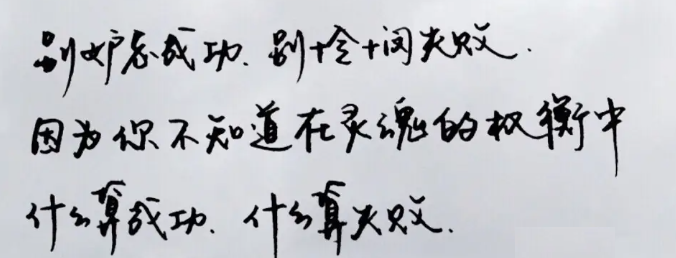 别妒忌成功.别怜悯失败.
因为你不知道在灵魂的权衡中
什么算成功.什么算失败.